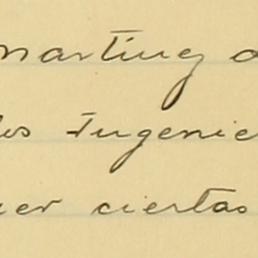 Martiny a
los Ingenie
er ciertas